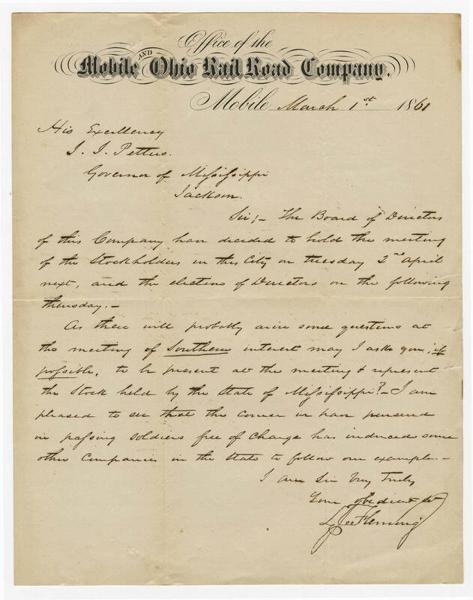 Office of the
Mobile AND Ohio Rail Road Company.
Mobile March 1st 1861
His Excellency
J. J. Pettus.
Governor of Mississippi
Jackson.
Sir;- The Board of Directors
of this Company have decided to hold the meeting
of the Stockholders in this City on tuesday 2nd April
next, and the election of Directors on the following
thursday.-
As there will probably arise some questions at
the meeting of Southern interest may I ask you, if
possible, to be present at the meeting & represent
the Stock held by the State of Mississippi?- I am
pleased to see that the course we have pursued
in passing soldiers free of charge has induced some
other Companies in the State to follow our example.-
I am Sir Very Truly
Your obedient st
L. J. Fleming